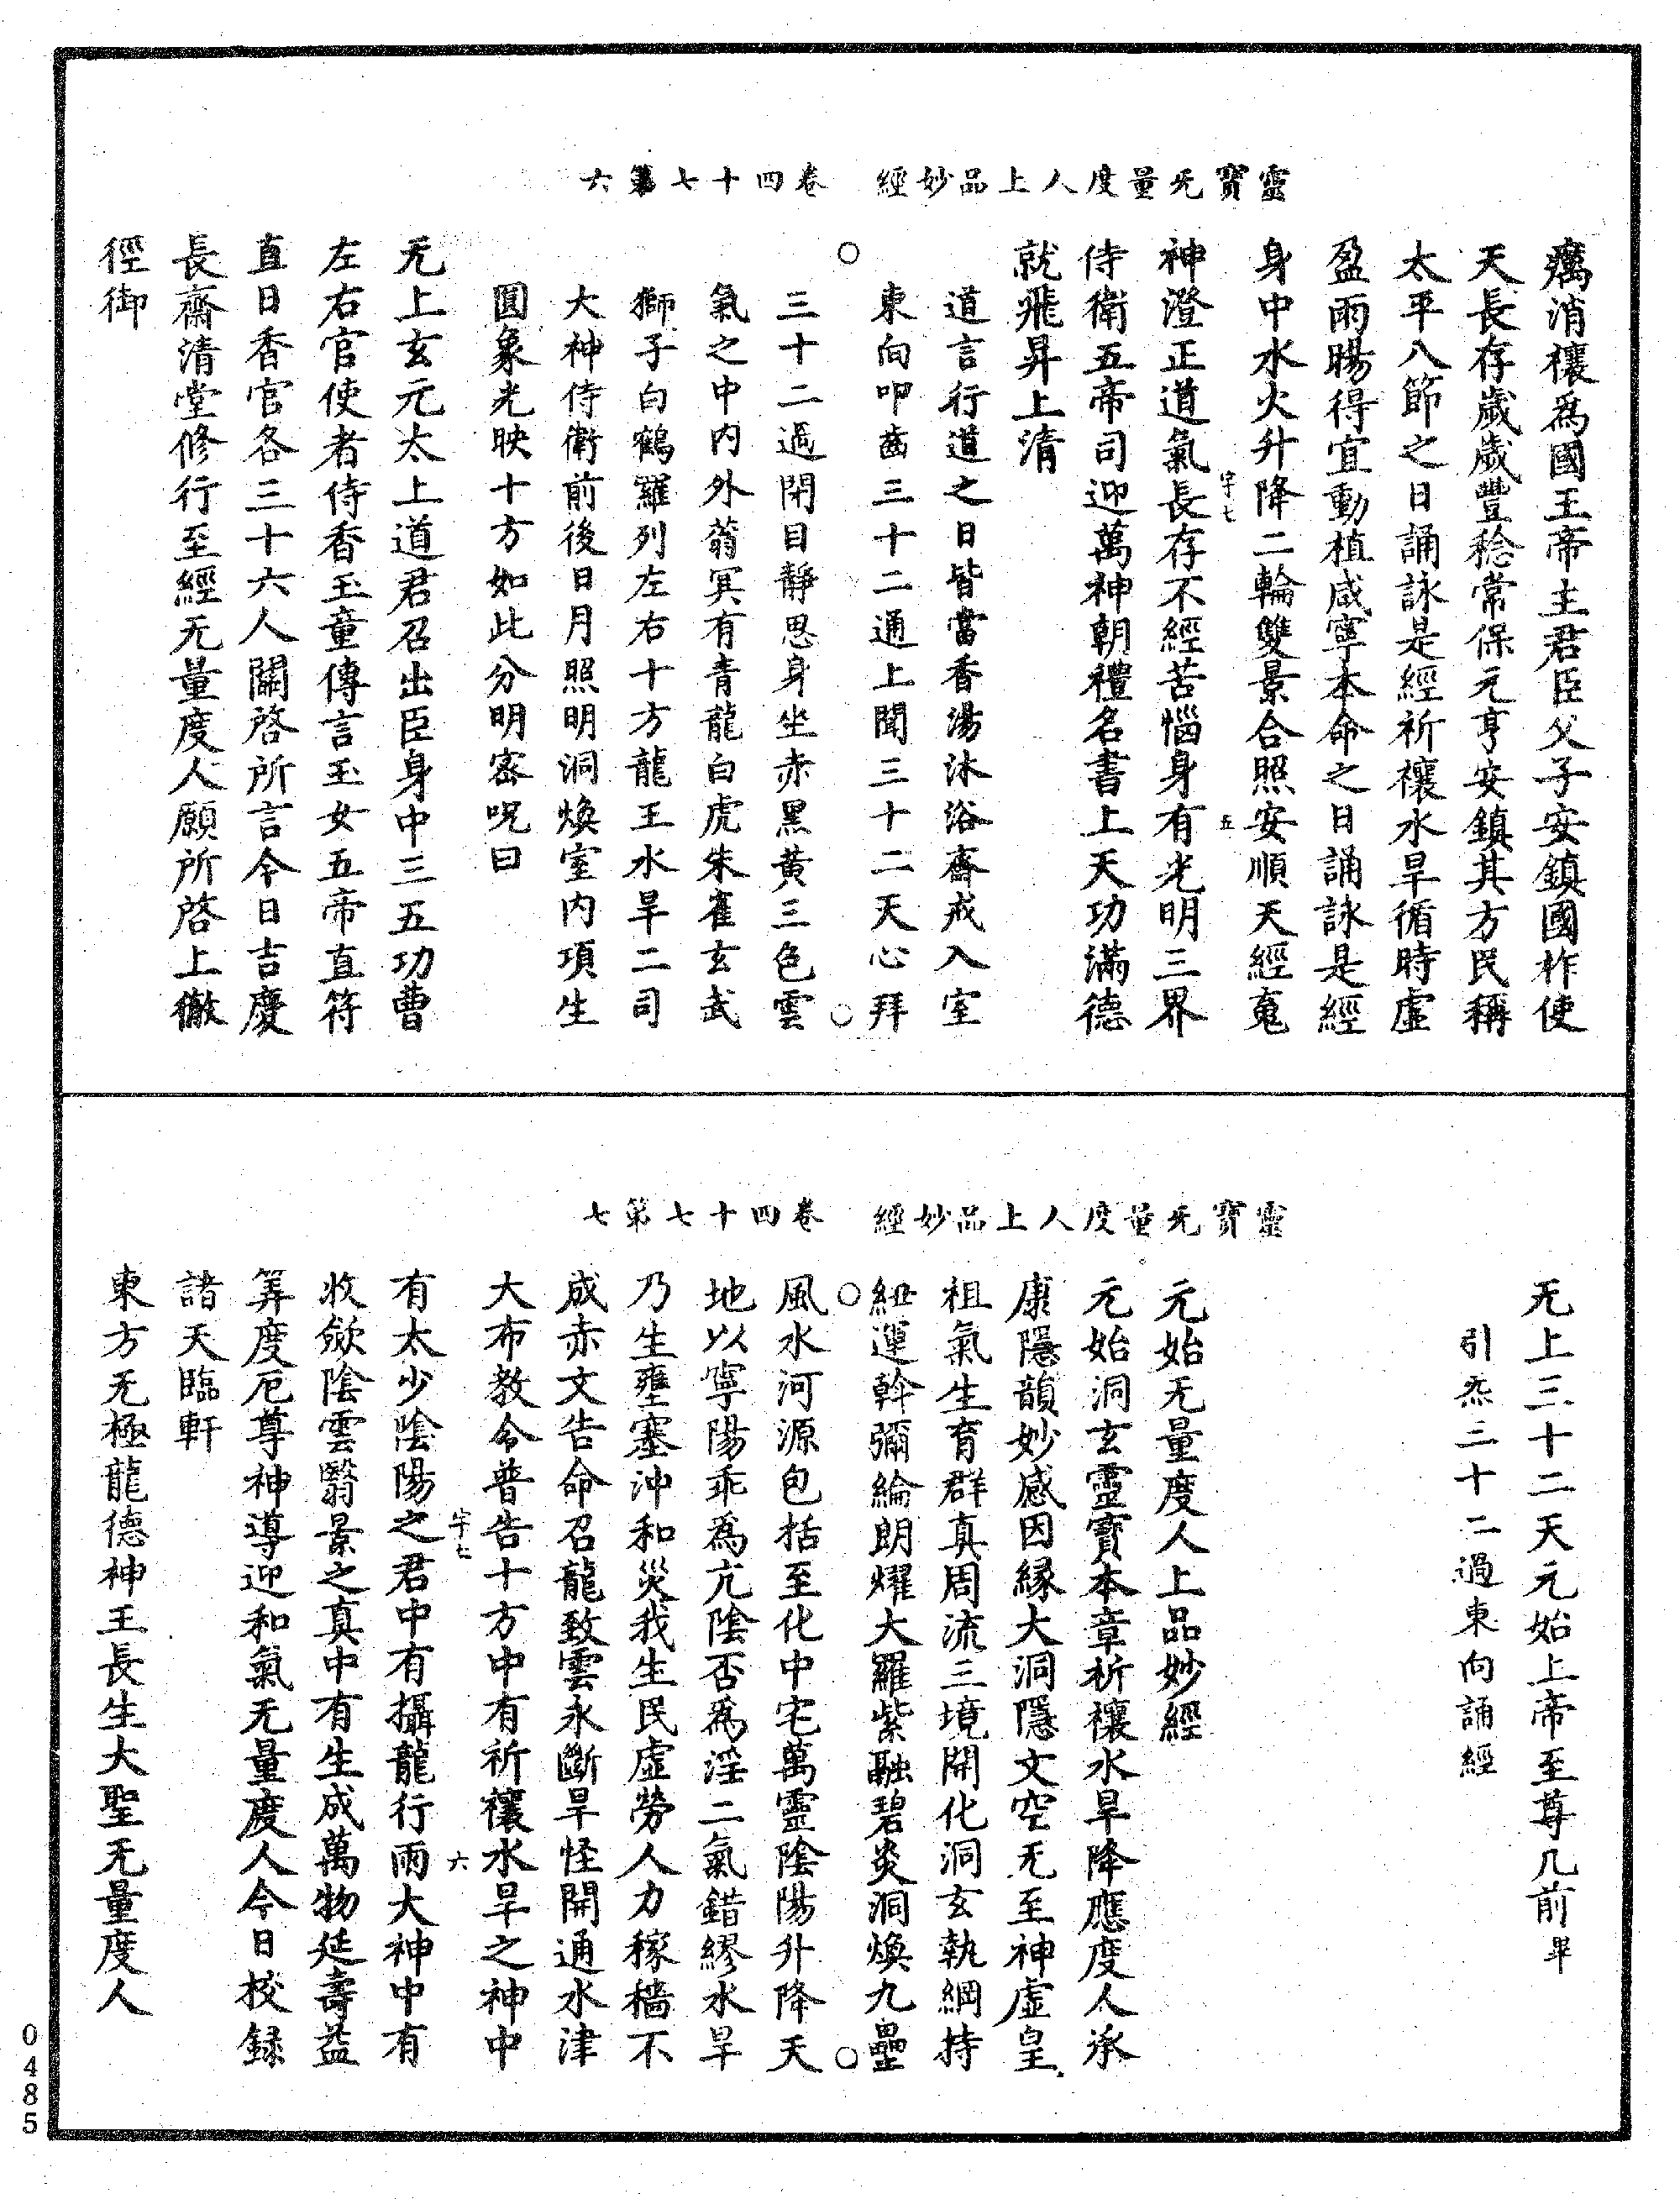 靈寶无量度人上品妙經　卷四十七第六
癘消禳爲國王帝主君臣父子安鎮國祚使
天長存歲歲豐稔常保元亨安鎮其方民稱
太平八節之日誦詠是經祈禳水旱循時虛
盈雨暘得宜動植咸寧本命之日誦詠是經
身中水火升降二輪雙景合照安順天經䰟
字七　五
神澄正道氣長存不經苦惱身有光明三界
侍衛五帝司迎萬神朝禮名書上天功滿德
就飛昇上清
道言行道之日皆當香湯沐浴齋戒入室
東向叩齒三十二通上聞三十二天心拜
三十二過閉目靜思身坐赤黑黄三色雲
氣之中内外蓊冥有青龍白虎朱雀玄武
獅子白鶴羅列左右十方龍王水旱二司
大神侍衛前後日月照明洞煥室内項生
圓象光映十方如此分明密呪曰
无上玄元太上道君召出臣身中三五功曹
左右官使者侍香玉童傳言玉女五帝直符
直日香官各三十六人關啓所言今日吉慶
長齋清堂修行至經无量度人願所啓上徹
徑御
靈寶无量度人上品妙經　卷四十七第七
无上三十二天元始上帝至尊几前畢
引炁三十二過東向誦經
元始无量度人上品妙經
元始洞玄靈寶本章祈禳水旱降應度人承
康隱韻妙感因緣大洞隱文空无至神虛皇
祖氣生育群真周流三境開化洞玄執綱持
紐運幹彌綸朗燿大羅紫融碧炎洞煥九壘
風水河源包括至化中宅萬靈陰陽升降天
地以寧陽乖爲亢陰否爲淫二氣錯繆水旱
乃生壅塞沖和災我生民虛勞人力稼穡不
成赤文告命召龍致雲永斷旱怪開通水津
大布教令普告十方中有祈禳水旱之神中
字七　六
有太少陰陽之君中有攝龍行雨大神中有
收斂陰雲翳景之真中有生成萬物延壽益
筭度厄尊神導迎和氣无量度人今日校録
諸天臨軒
東方无極龍德神王長生大聖无量度人
0485